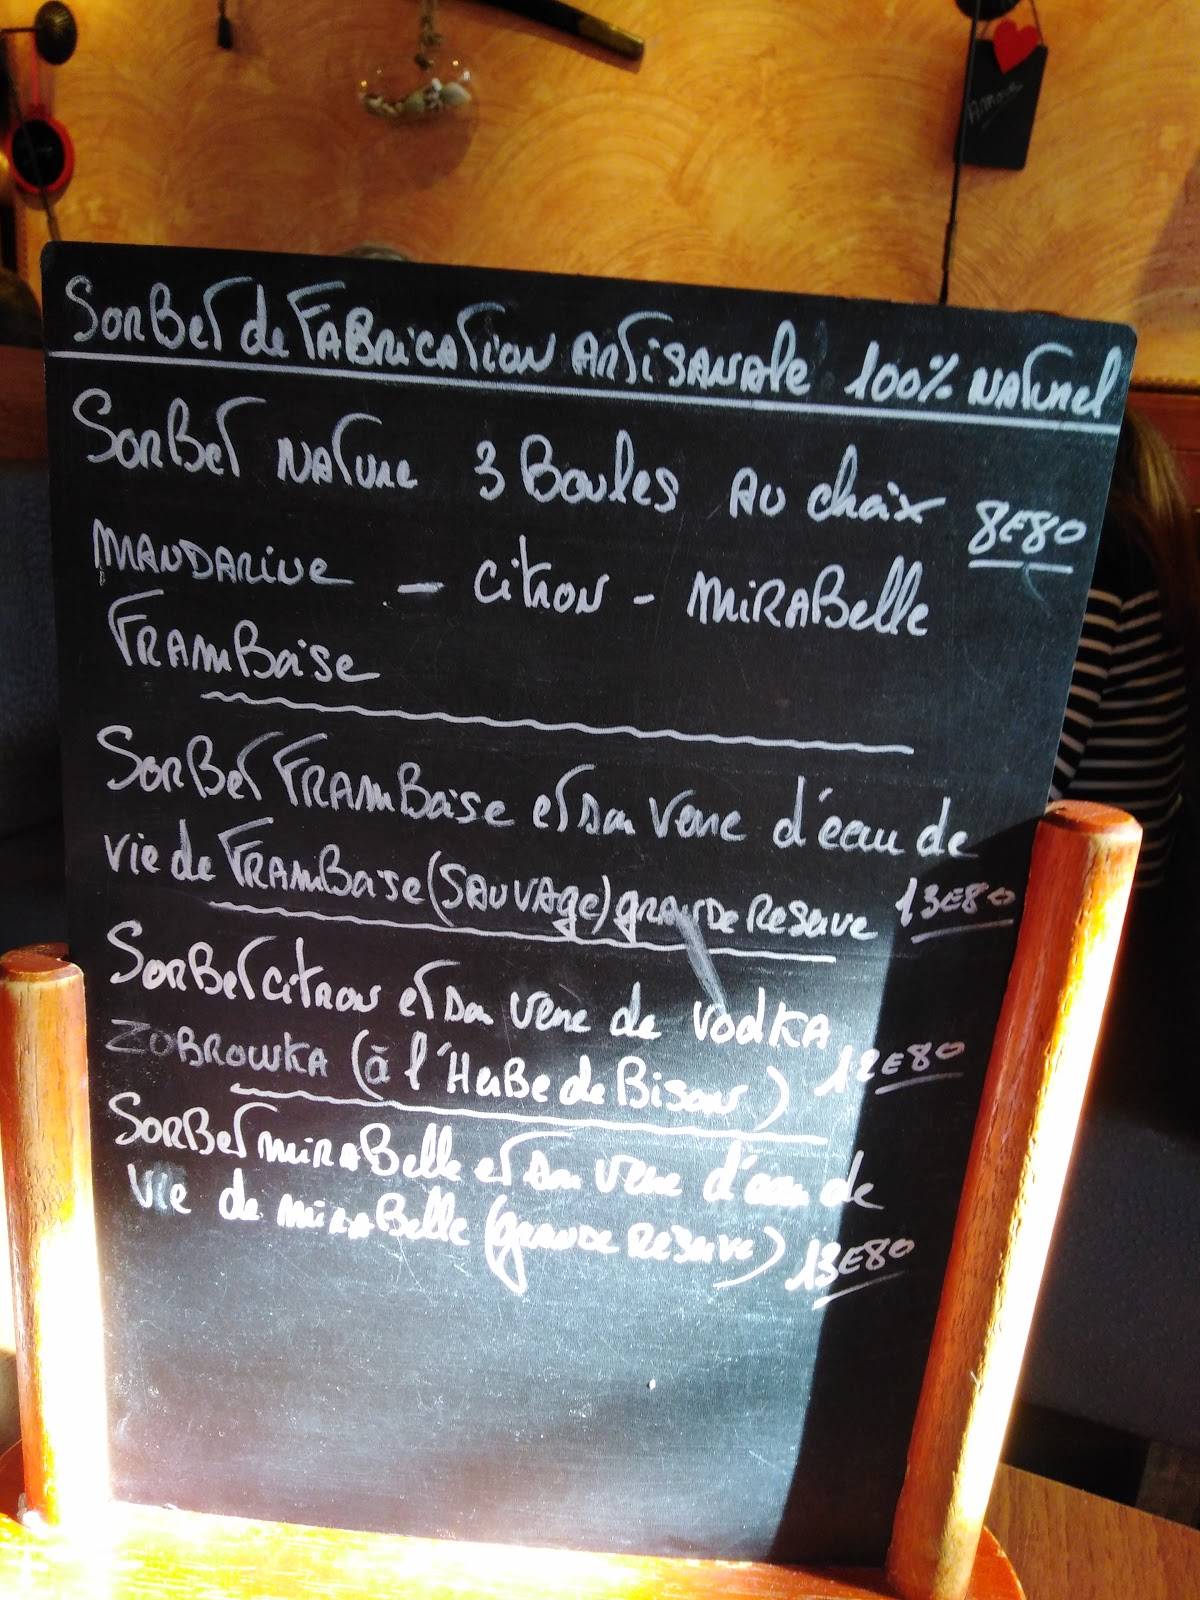 Amour
SorBet de FABricATion ArTiSANAle 100% NATurel
SorBet NATure 3 Boules AU choix 8E80
MANDARiNe - CitroN - MiRABelle
FRAMBoise
SorBet FRAMBoise et son verre d'eau de
vie de FRAMBoise (SAUVAge) grANDe Reserve 13E80
SorBet citron et son verre de vodKA
ZOBROWKA (à l'HerBe de Bison) 12E80
SorBet miRABelle et son verre d'eau de
vie de miRABelle (grande Reserve) 13E80